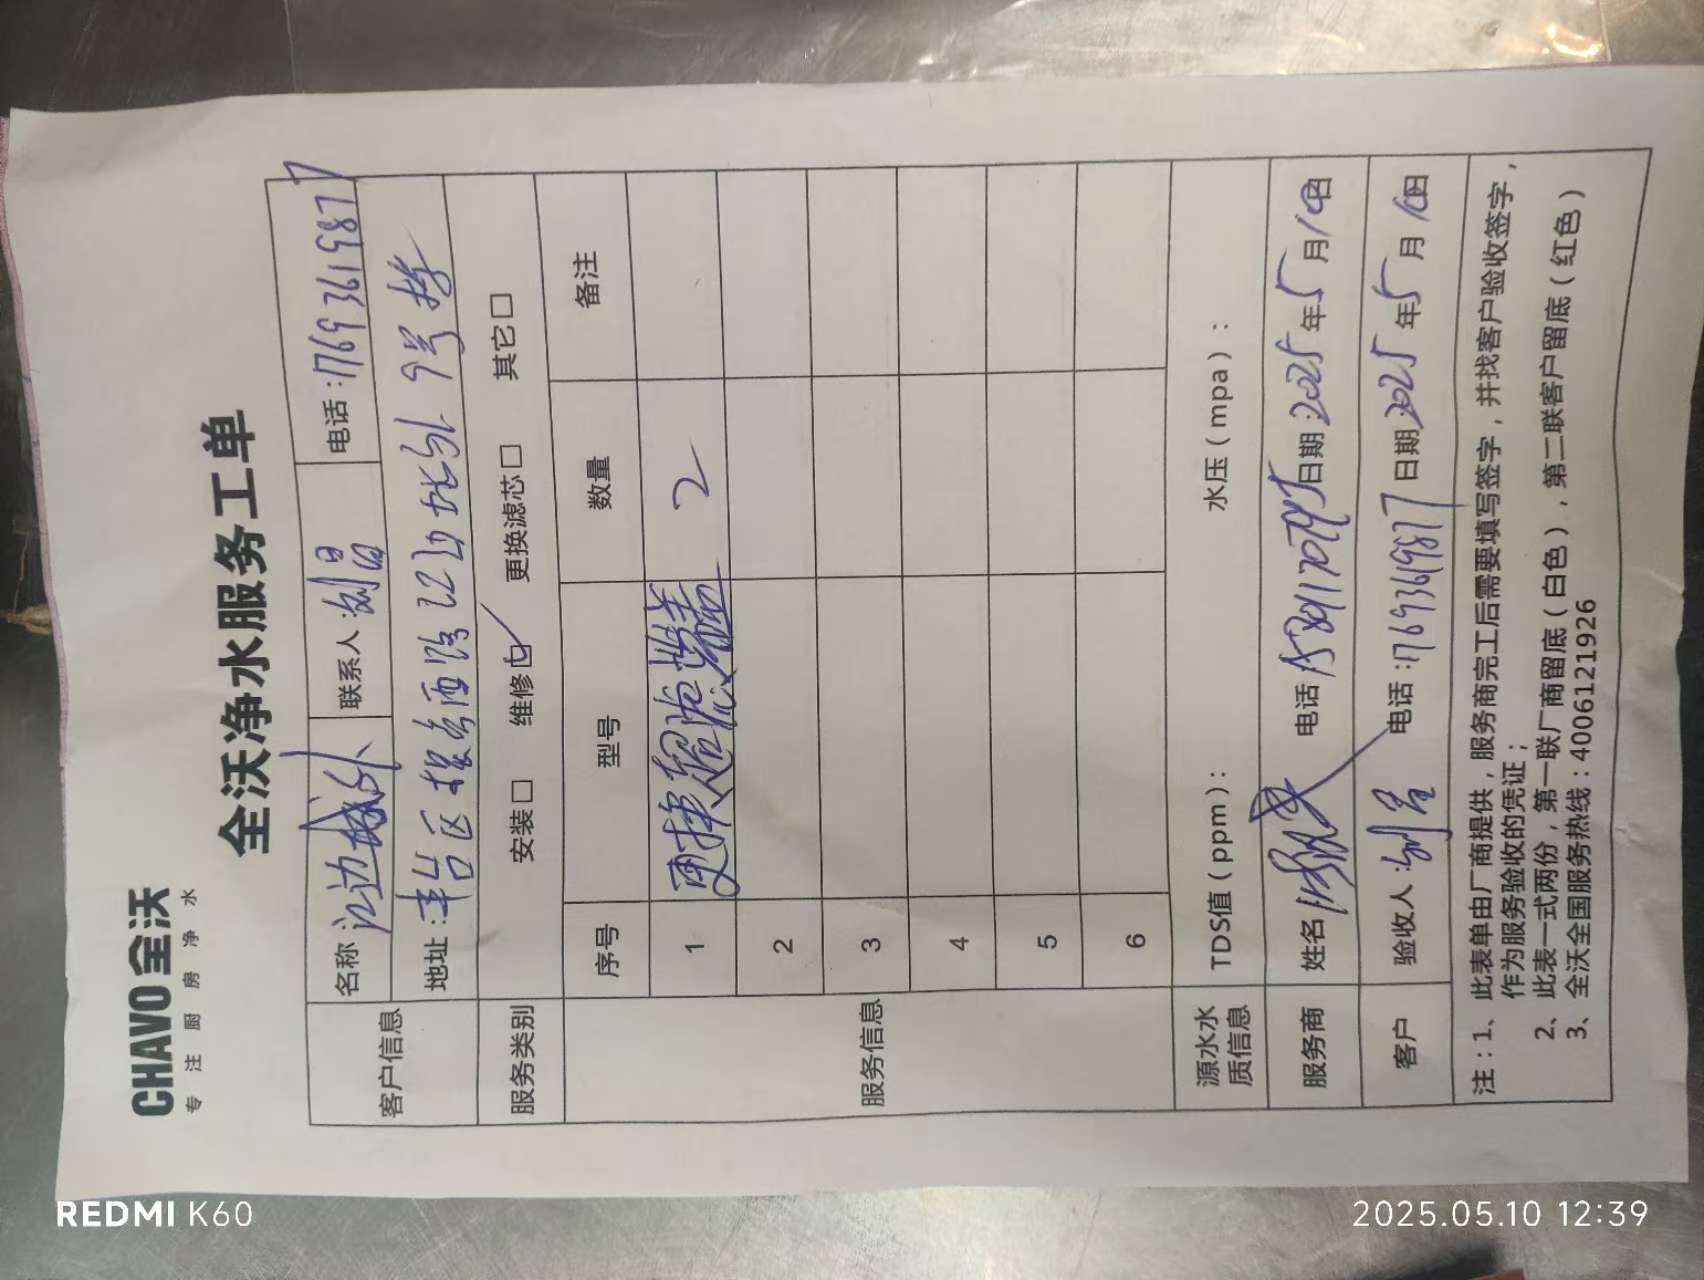 CHAVO 全沃
专注厨房净水
全沃净水服务工单
客户信息
名称 江边城外 联系人:刘晶 电话:17693619877
地址:丰台区 西路 9号楼
服务类别 安装□ 维修☑ 更换滤芯□ 其它□
服务信息
序号 型号 数量 备注
1 更换 2
2
3
4
5
6
源水水质信息 TDS值(ppm): 水压(mpa):
服务商 姓名 电话 日期:2025年5月10日
客户 验收人:刘晶 电话:17693619877 日期:2025年5月10日
注:1、此表单由厂商提供,服务商完工后需要填写签字,并找客户验收签字,
作为服务验收的凭证;
2、此表一式两份,第一联厂商留底(白色),第二联客户留底(红色)
3、全沃全国服务热线:4006121926
REDMI K60
2025.05.10 12:39